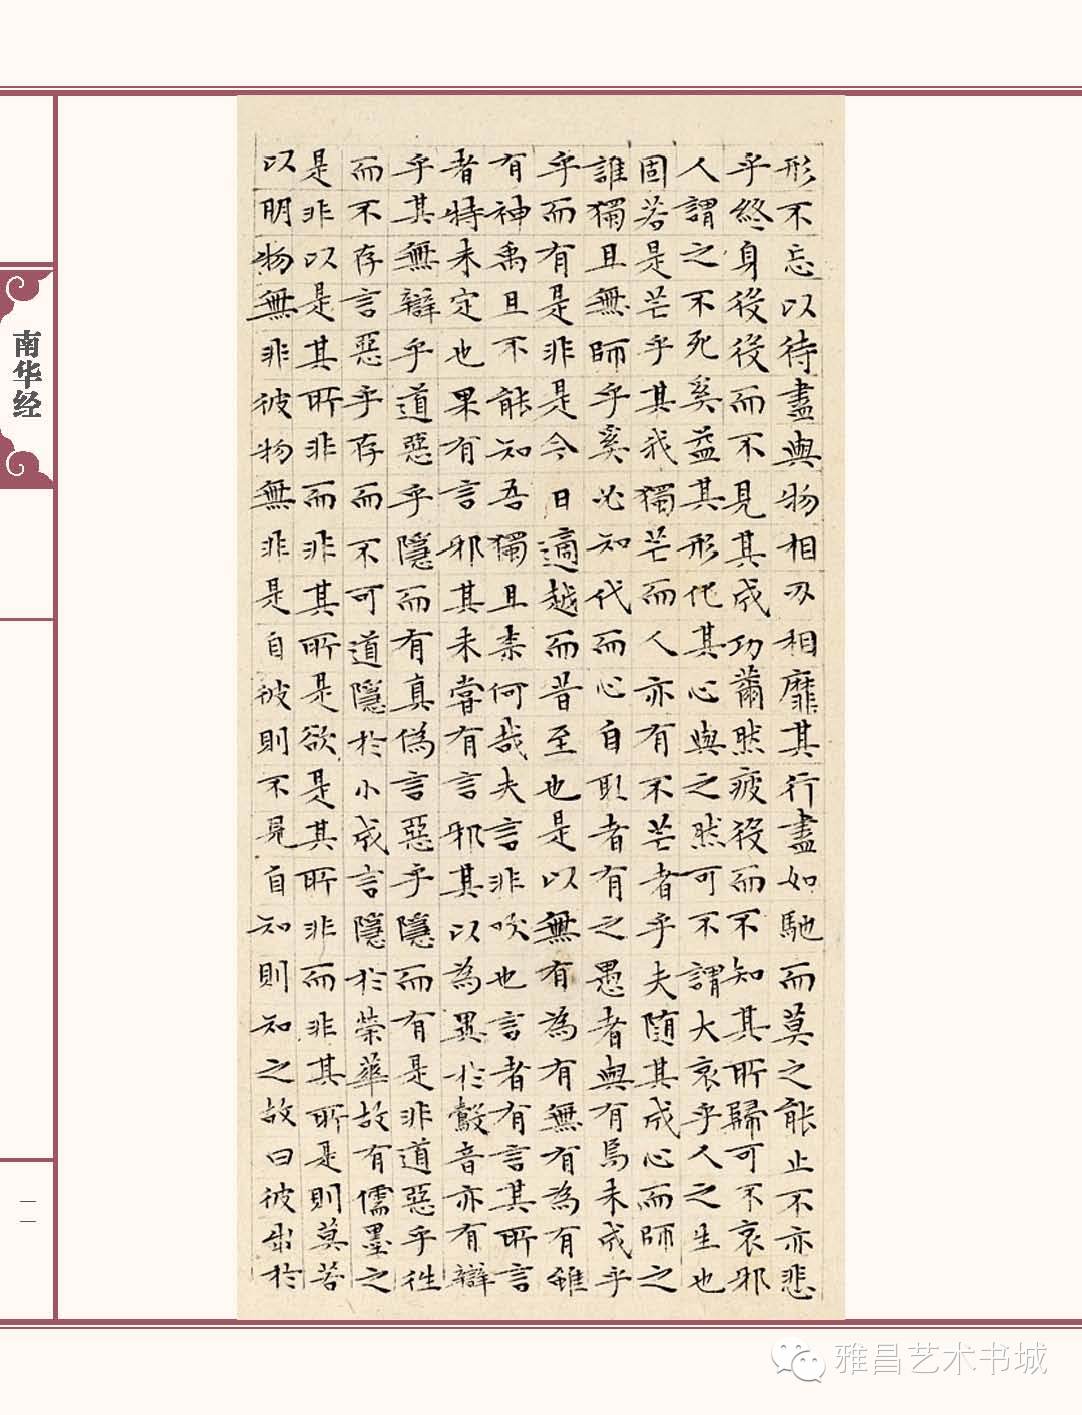 形不忘以待盡與物相刃相靡其行盡如馳而莫之能止不亦悲
乎終身役役而不見其成功薾然疲役而不知其所歸可不哀邪
人謂之不死奚益其形化其心與之然可不謂大哀乎人之生也
固若是芒乎其我獨芒而人亦有不芒者乎夫隨其成心而師之
誰獨且無師乎奚必知代而心自取者有之愚者與有焉未成乎
乎而有是非是今日適越而昔至也是以無有為有無有為有雖
有神禹且不能知吾獨且柰何哉夫言非吹也言者有言其所言
者特未定也果有言邪其未嘗有言邪其以為異於鷇音亦有辯
乎其無辯乎道惡乎隱而有真偽言惡乎隱而有是非道惡乎往
而不存言惡乎存而不可道隱於小成言隱於榮華故有儒墨之
是非以是其所非而非其所是欲是其所非而非其所是則莫若
以明物無非彼物無非是自彼則不見自知則知之故曰彼出於
南华经
一一
雅昌艺术书城